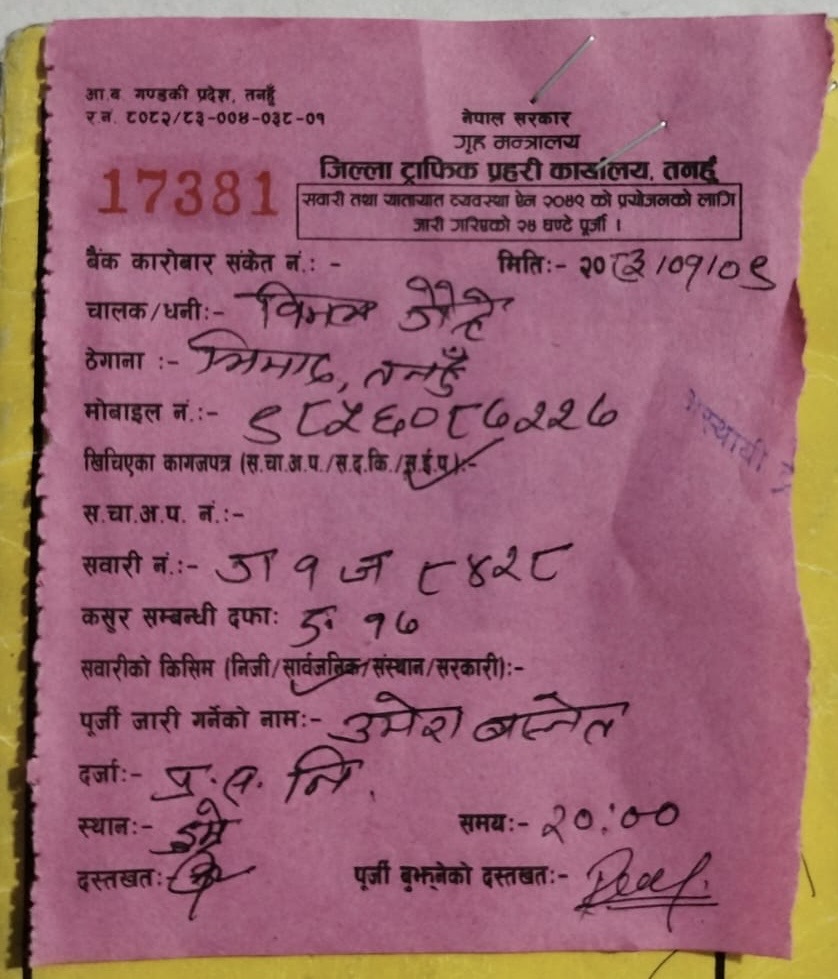 आ.ब. गण्डकी प्रदेश, तनहुँ
र.न. ८०८२/८३-००४-०३८-०१
नेपाल सरकार
गृह मन्त्रालय
जिल्ला ट्राफिक प्रहरी कार्यालय, तनहुँ
17381
सवारी तथा यातायात व्यवस्था ऐन २०४९ को प्रयोजनको लागि
जारी गरिएको २४ घण्टे पूर्जी ।
बैंक कारोबार संकेत नं.: -
मितिः- २०८३/०१/०९
चालक/धनी:- विमल
ठेगाना :- भिमाद, तनहुँ
मोबाइल नं.:- ९८५६०८७२२७
खिचिएका कागजपत्र (स.चा.अ.प./स.द.कि./स.ई.प):-
अस्थायी
स.चा.अ.प. नं.:-
सवारी नं.:- ग १ ज ८४२८
कसुर सम्बन्धी दफाः १७
सवारीको किसिम (निजी/सार्वजनिक/संस्थान/सरकारी):-
पूर्जी जारी गर्नेको नामः- उमेश बस्नेत
दर्जाः- प्र.स.नि.
स्थानः- डुम्रे
समयः- २०:००
दस्तखतः
पूर्जी बुझ्नेको दस्तखतः-